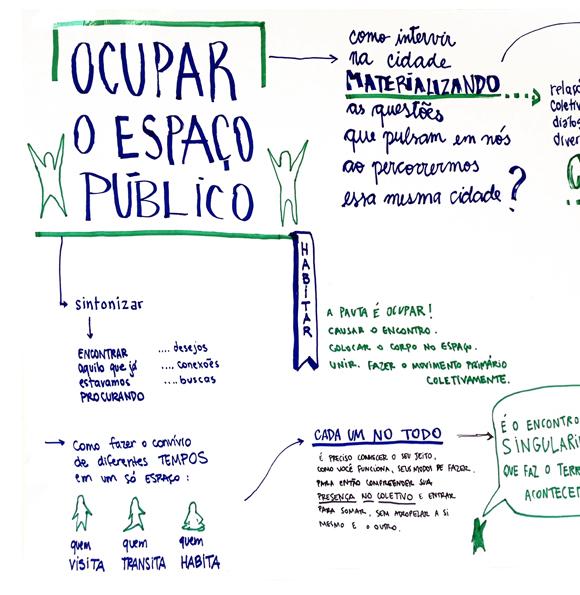 OCUPAR
O ESPAÇO
PÚBLICO
como intervir
na cidade
MATERIALIZANDO
as questões
que pulsam em nós
ao percorrermos
essa mesma cidade?
relaçõ
coletiv
diálog
diver
HABITAR
sintonizar
ENCONTRAR
aquilo que já
estavamos
PROCURANDO
.... desejos
.... conexões
.... buscas
A PAUTA É OCUPAR!
CAUSAR O ENCONTRO.
COLOCAR O CORPO NO ESPAÇO.
UNIR. FAZER O MOVIMENTO PRIMÁRIO
COLETIVAMENTE.
Como fazer o convívio
de diferentes TEMPOS
em um só ESPAÇO:
quem
VISITA
quem
TRANSITA
quem
HABITA
CADA UM NO TODO
É PRECISO CONHECER O SEU JEITO,
COMO VOCÊ FUNCIONA, SEUS MODOS DE FAZER,
PARA ENTÃO COMPREENDER SUA
PRESENÇA NO COLETIVO E ENTRAR
PARA SOMAR, SEM ATROPELAR A SI
MESMO E O OUTRO.
É O ENCONTRO
SINGULARI
QUE FAZ O TERR
ACONTECER